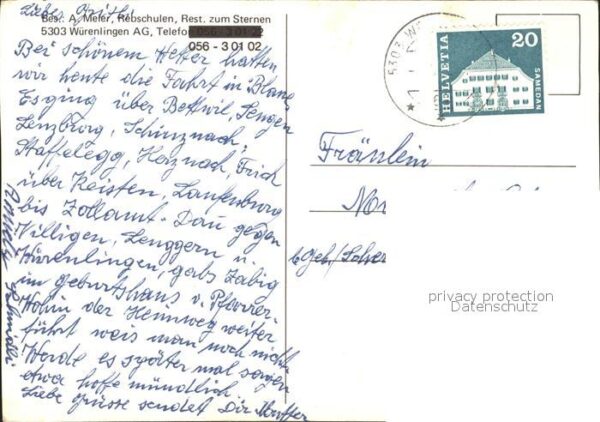 Liebes
Bes. A. Meier, Rebschulen, Rest. zum Sternen
5303 Würenlingen AG, Telefon 056 - 3 01 22
056 - 3 01 02
Bei schönem Wetter hatten
wir heute die Fahrt in Blaue
Es ging über Bettwil, Sengen
Lenzburg, Schinznach,
Staffelegg, Herznach, Frick
über Keisten, Laufenburg
bis Zollamt. Dan gegen
Villigen, Lenggern u.
Würenlingen, gabs Zabig
im Geburtshaus v. Pfarrer.
Wohin der Heimweg weiter
führt weis man noch nicht
Werde es später mal sagen
etwa hoffe mündlich.
Liebe Grüsse sendet Dir
HELVETIA
20
SAMEDAN
5303
Fräulein
b. Geb/
privacy protection
Datenschutz